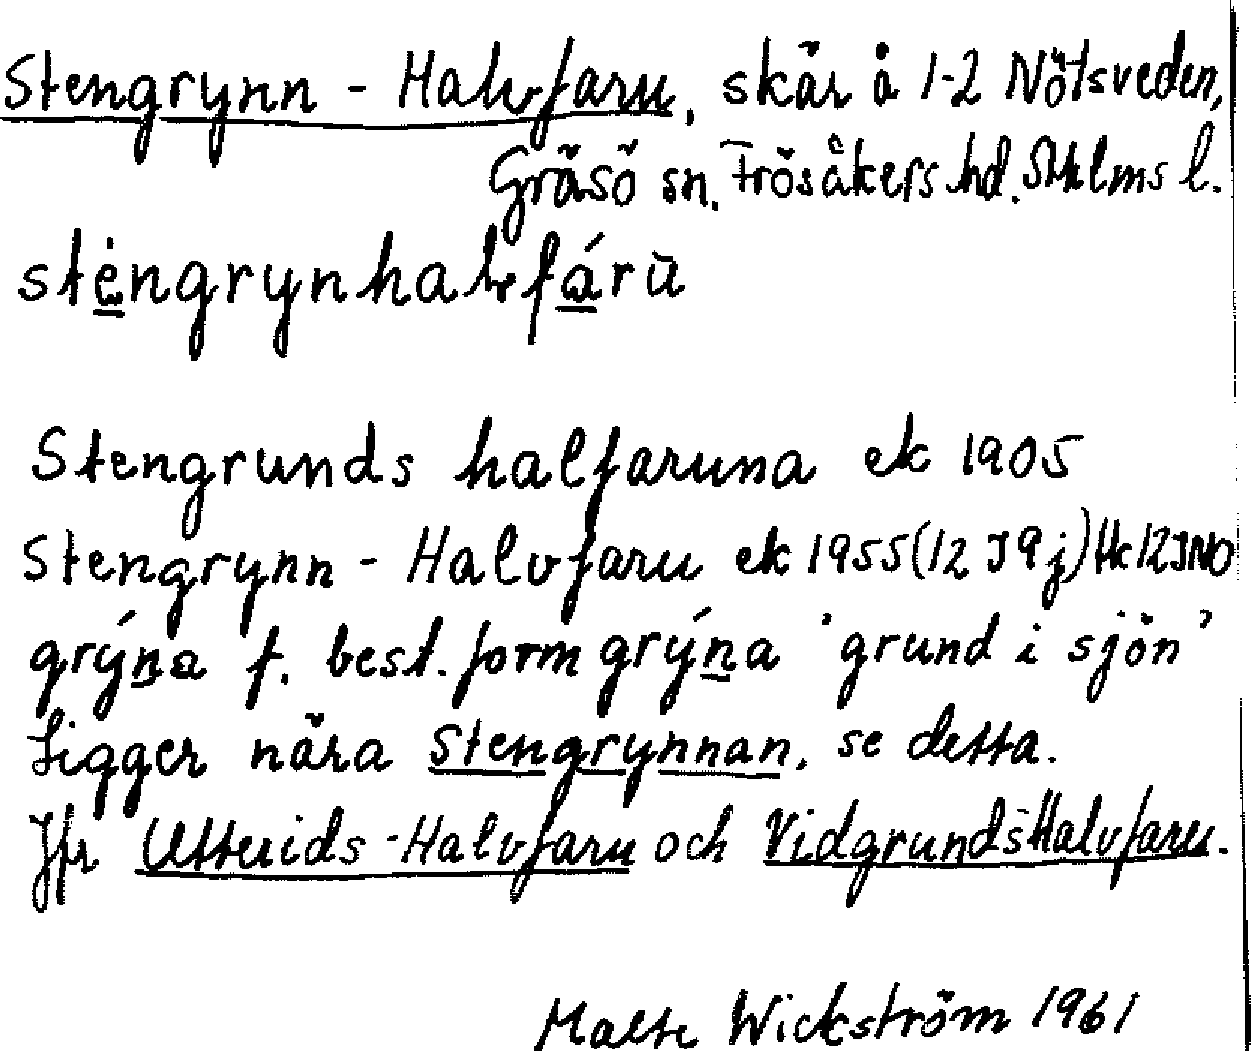 Stengrynn - Halvfaru, skär å 1-2 Nötsveden,
Gräsö sn. Frösåkers hd. Sthlms l.
stėngrynhalvfárū
Stengrunds halfaruna ek 1905
Stengrynn - Halvfaru ek 1955 (12 I 9 j) Hk 12 I NO
grýna f. best. form grýna 'grund i sjön'
Ligger nära Stengrynnan, se detta.
Jfr Utterids-Halvfaru och Vidgrunds-Halvfaru.
Malte Wickström 1961